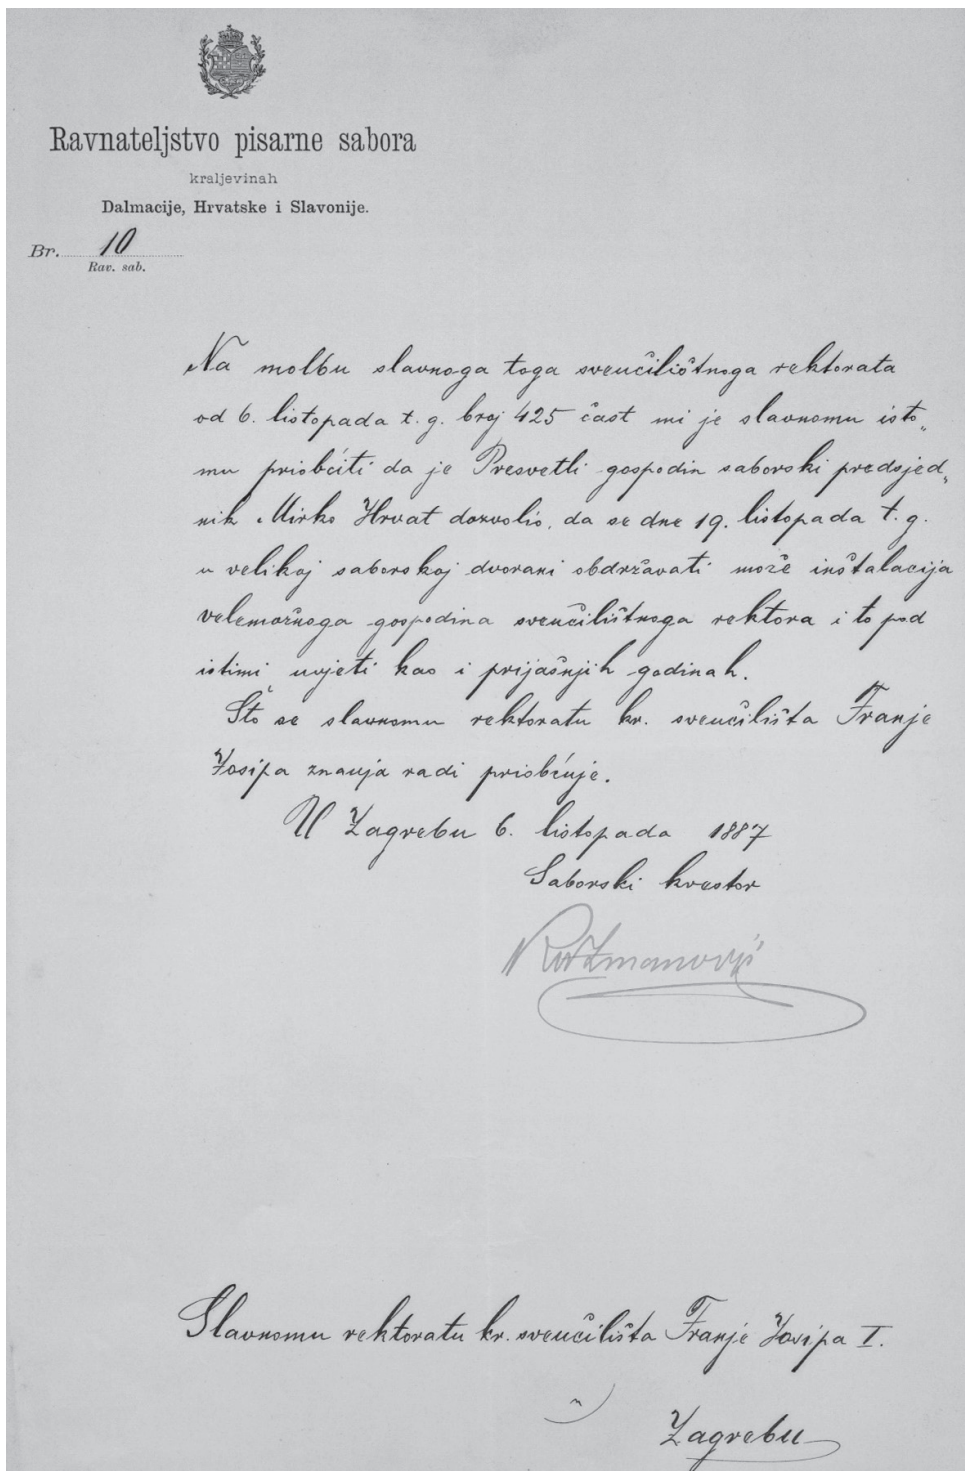 Ravnateljstvo pisarne sabora
kraljevinah
Dalmacije, Hrvatske i Slavonije.
Br. 10
Rav. sab.
Na molbu slavnoga toga sveučilištnoga rektorata
od 6. listopada t. g. broj 425 čast mi je slavnomu isto„
mu priobćiti da je Presvetli gospodin saborski predsjed„
nik Mirko Hrvat dozvolio, da se dne 19. listopada t. g.
u velikoj saborskoj dvorani obdržavati može inštalacija
velemožnoga gospodina sveučilištnoga rektora i to pod
istimi uvjeti kao i prijašnjih godinah.
Što se slavnomu rektoratu kr. sveučilišta Franje
Josipa znanja radi priobćuje.
U Zagrebu 6. listopada 1887
Saborski kvestor
Slavnomu rektoratu kr. sveučilišta Franje Josipa I.
Zagrebu